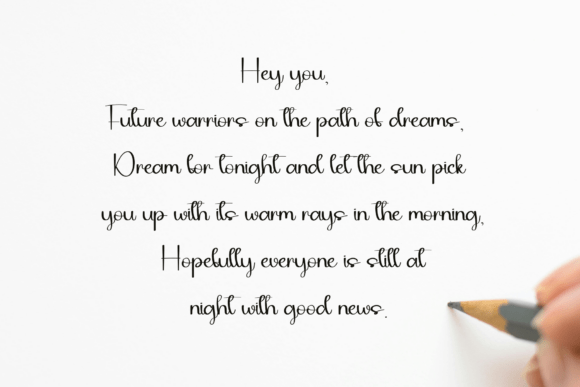 Hey you,
Future warriors on the path of dreams,
Dream for tonight and let the sun pick
you up with its warm rays in the morning,
Hopefully everyone is still at
night with good news.